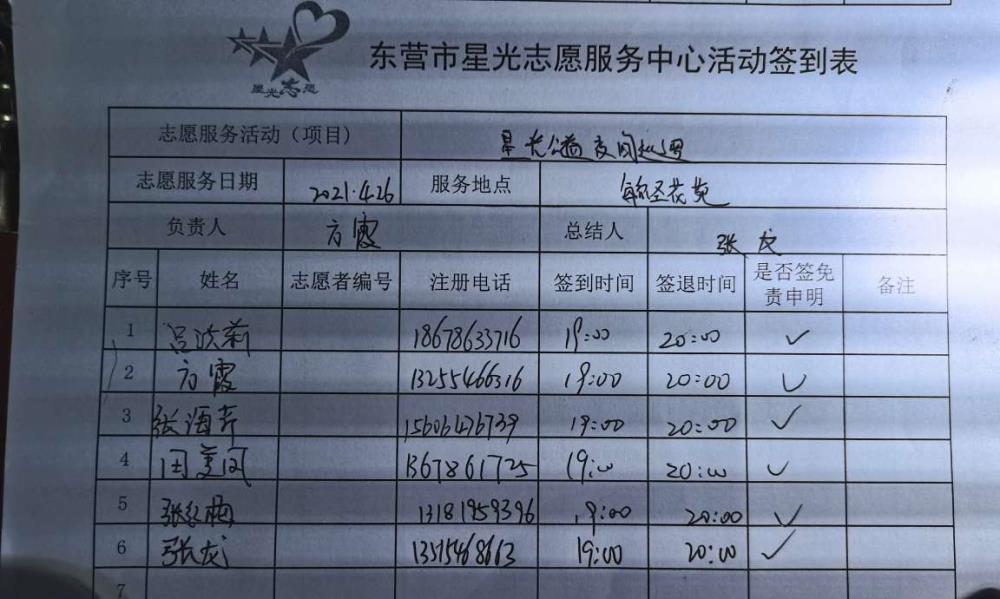 星光志愿
东营市星光志愿服务中心活动签到表
志愿服务活动（项目） 星光公益夜间巡逻
志愿服务日期 2021.4.26 服务地点 毓圣花苑
负责人 方霞 总结人 张龙
序号 姓名 志愿者编号 注册电话 签到时间 签退时间 是否签免责申明 备注
1 吕洪莉 18678633716 19:00 20:00 ✓
2 方霞 13255466316 19:00 20:00 ✓
3 张海芹 15606476739 19:00 20:00 ✓
4 田美凤 1367861725 19:00 20:00 ✓
5 张红梅 13181959396 19:00 20:00 ✓
6 张龙 13515468663 19:00 20:00 ✓
7